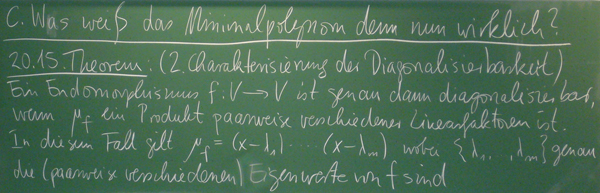 C. Was weiß das Minimalpolynom denn nun wirklich?
20.15. Theorem: (2. Charakterisierung der Diagonalisierbarkeit)
Ein Endomorphismus f: V → V ist genau dann diagonalisierbar,
wenn μ_f ein Produkt paarweise verschiedener Linearfaktoren ist.
In diesem Fall gilt μ_f = (x-λ₁)⋯(x-λ_m) wobei {λ₁,…,λ_m} genau
die (paarweise verschiedenen) Eigenwerte von f sind